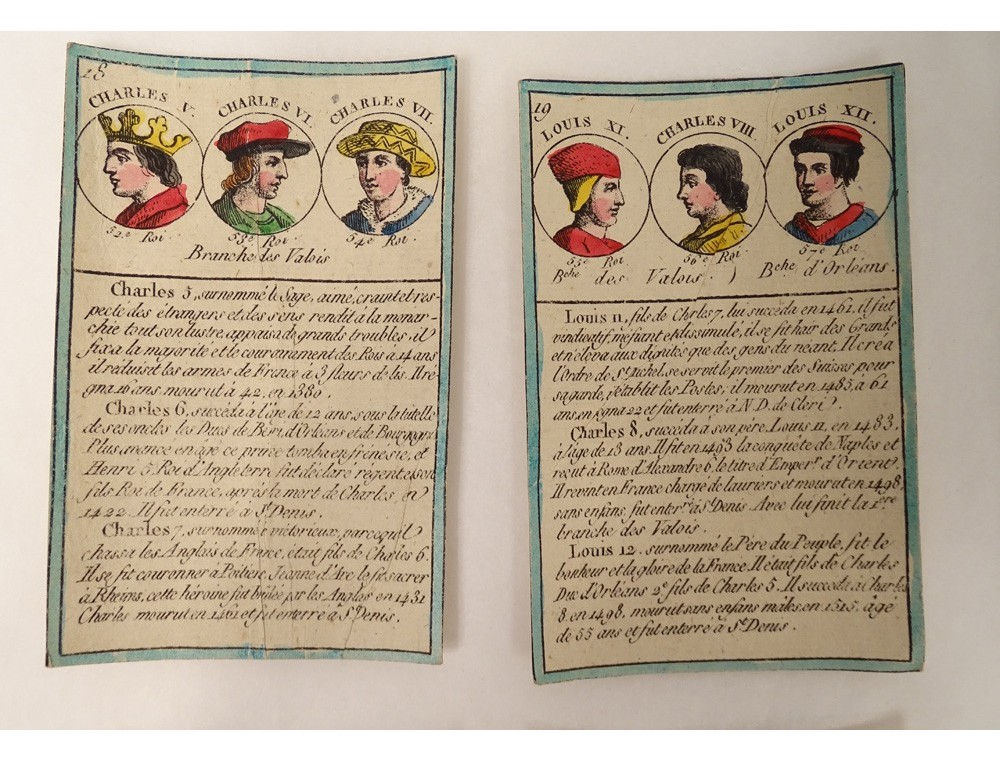 18
CHARLES V. CHARLES VI. CHARLES VII.
52e Roi. 53e Roi. 54e Roi.
Branche des Valois
Charles 5, surnommé le Sage, aimé, craint et res-
pecté des étrangers et des siens rendit à la monar-
chie tout son lustre, appaisa de grands troubles, il
fixa la majorite et le couronnement des Rois à 14 ans
il reduisit les armes de France à 3 fleurs de lis. Il ré-
gna 16 ans mourut à 42. en 1380.
Charles 6, succéda à l'âge de 12 ans, sous la tutelle
de ses oncles les Ducs de Béri, d'Orléans et de Bourgogne
Plus avancé en âge ce prince tomba en frénésie, et
Henri 5 Roi d'Angleterre fut déclaré régent et son
fils Roi de France, après la mort de Charles, en
1422. Il fut enterré à St. Denis.
Charles 7, surnommé victorieux, parcequ'il
chassa les Anglais de France, était fils de Charles 6.
Il se fit couronner à Poitiers Jeanne d'Arc le fit sacrer
à Rheims, cette héroine fut brûlée par les Anglas en 1431
Charles mourut en 1461 et fut enterré à St. Denis.
19
LOUIS XI. CHARLES VIII. LOUIS XII.
55e Roi 56e Roi 57e Roi
Bche des Valois. ) Bche d'Orléans.
Louis 11, fils de Chrles 7, lui succéda en 1461, il fut
vindicatif, méfiant et dissimulé, il se fit haïr des Grands
et n'éleva aux dignités que des gens du néant. Il créa
l'Ordre de St. Michel, se servit le premier des Suisses, pour
sa garde, rétablit les Postes; il mourut en 1483, à 61
ans, en regna 22 et fut enterré à N. D. de Cleri.
Charles 8, succéda a son père, Louis 11, en 1483,
à l'âge de 13 ans. Il fit en 1493 la conquête de Naples et
reçut à Rome d'Alexandre 6, le titre d'Emper. d'Orient,
Il revint en France chargé de lauriers et mourut en 1498,
sans enfans, fut enter. à St. Denis. Avec lui finit la 1ere
branche des Valois.
Louis 12. surnommé le Père du Peuple, fit le
bonheur et la gloire de la France. Il était fils de Charles
Duc d'Orléans 2e fils de Charles 5. Il succéda à Charles
8 en 1498, mourut sans enfans males, en 1515, âgé
de 55 ans et fut enterré à St. Denis.